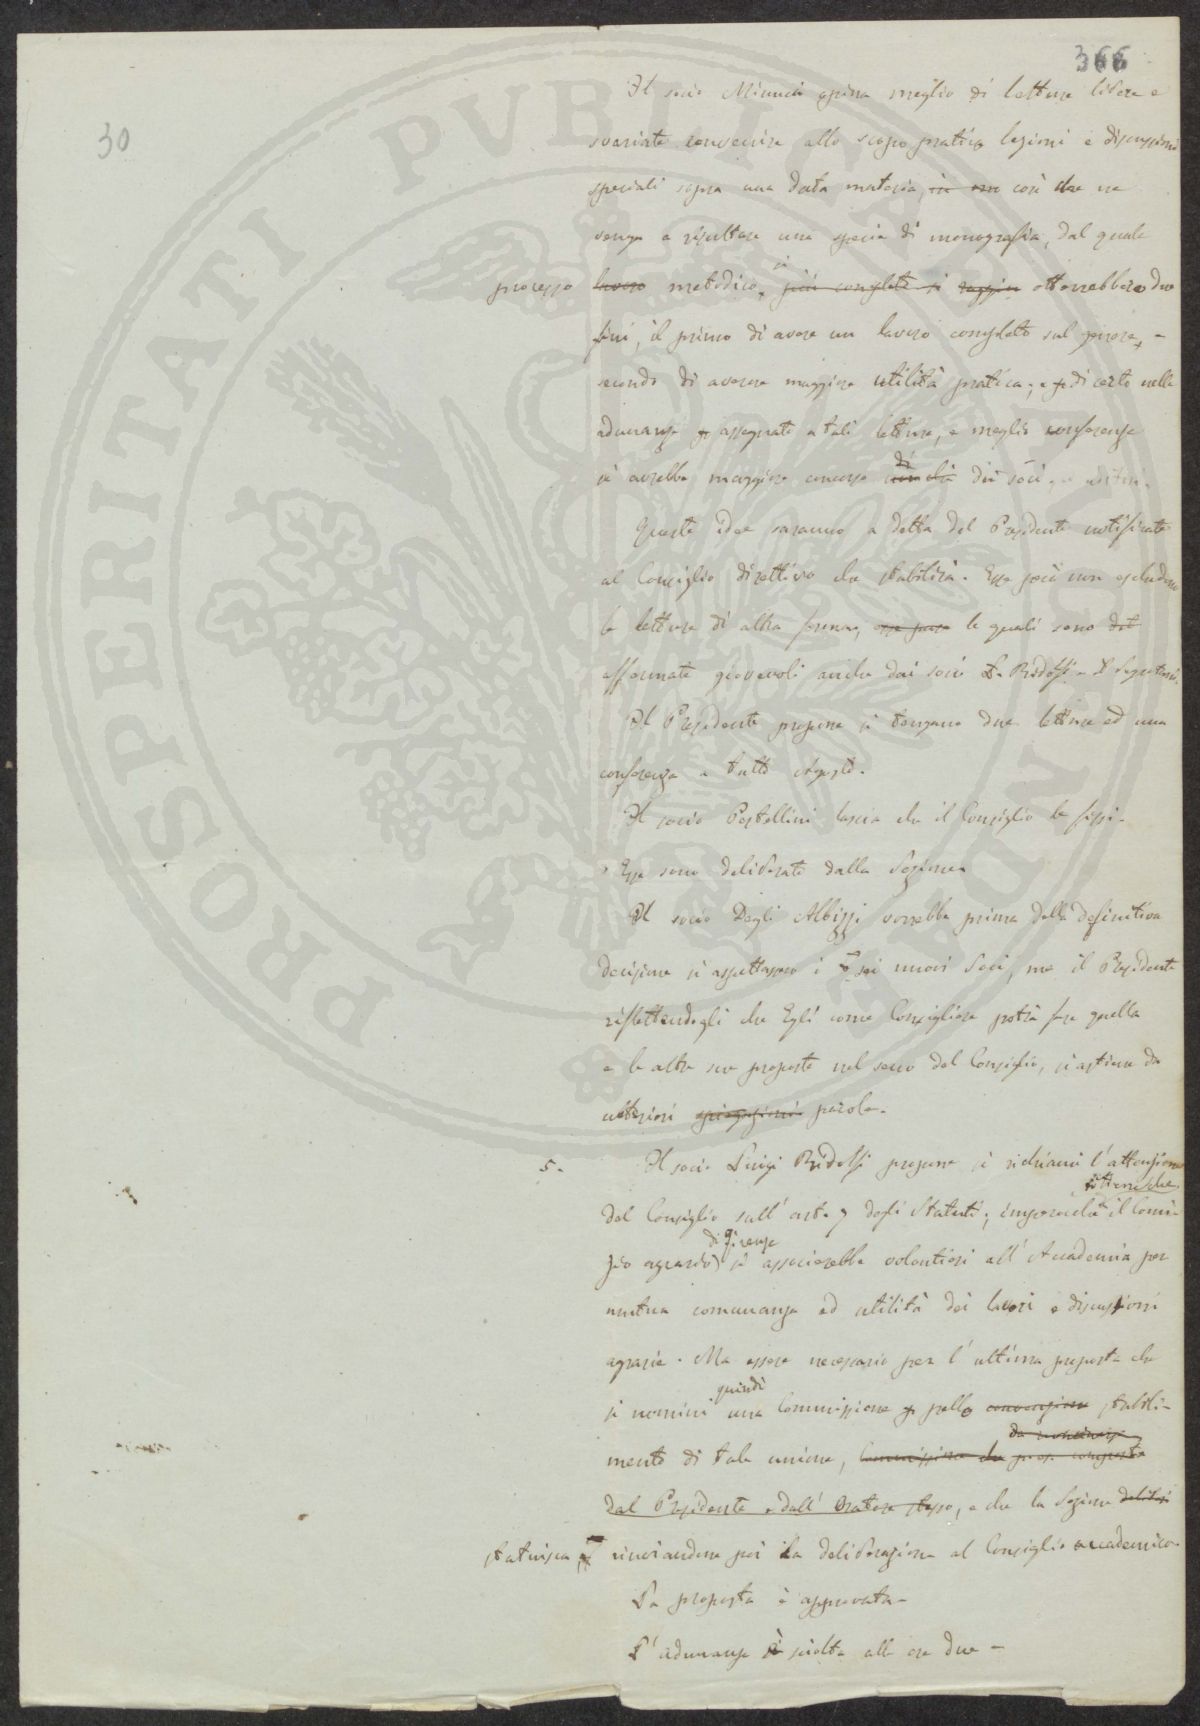 366
30
Il socio Minucci opina meglio di letture libere e
svariate convenire allo scopo pratico lezioni e discussioni
speciali sopra una data materia, in un così che ne
venga a risultare una specie di monografia, dal quale
processo lavoro metodico, si più completi si ottenebbero due
fini, il primo di avere un lavoro completo sul genere, -
secondo di averne maggiore utilità pratica; e di certo nelle
adunanze assegnate a tali letture, o meglio conferenze
si avrebbe maggiore concorso di dei soci, e uditori.
Queste idee saranno a detta del Presidente notificate
al Consiglio direttivo che stabilirà. Esse però non escludono
le letture di altra forma, le quali sono
affermate giovevoli anche dai soci L. Ridolfi e il Segretario.
Il Presidente propone si tengano due letture ed una
conferenza a tutto Agosto.
Il socio Pestellini lascia che il Consiglio le fissi.
Esse sono deliberate dalla Sezione.
Il socio Degli Albizzi vorrebbe prima della definitiva
decisione si aspettassero i sei nuovi Soci, ma il Presidente
riflettendogli che Egli come Consigliere potrà fare quella
e le altre sue proposte nel seno del Consiglio, si astiene da
ulteriori spiegazioni parole.
5. Il socio Luigi Ridolfi propone si richiami l'attenzione
ritiene che
del Consiglio sull'art. 7 degli Statuti; imperocchè il Comi-
di Firenze
zio agrario si associerebbe volentieri all'Accademia per
mutua comunanza ed utilità dei lavori e discussioni
agrarie. Ma essere necessario per l'ultima proposta che
quindi
si nomini una Commissione pello convenzione stabili-
da nominarsi
mento di tale unione, Commissione da composta
dal Presidente e dall'Oratore stesso, e che la Sezione deliberi
statuisca rinviandone poi la deliberazione al Consiglio accademico.
La proposta è approvata.
L'adunanza è sciolta alle ore due -
PROSPERITATI PUBLICAE AUGENDAE